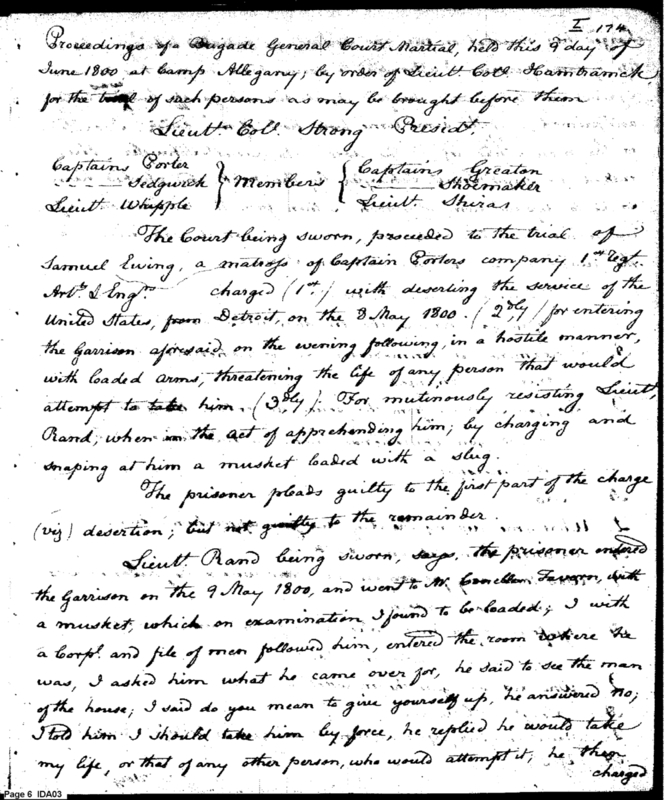 I 174
Proceedings of a Brigade General Court Martial, held this 9 day of
June 1800 at Camp Allegany; by order of Lieut. Coll. Hamtramck
for the trial of such persons as may be brought before them
Lieut. Coll. Strong Presidt.
Captains Porter } Members { Captains Greaton
—— Sedgwick —— Shoemaker
Lieut. Whipple Lieut. Shiras
The Court being sworn, proceeded to the trial of
Samuel Ewing, a matross of Captain Porters company 1st Regt.
Arts. & Engrs. charged (1st) with deserting the service of the
United States, from Detroit, on the 8 May 1800. (2dly) for entering
the Garrison aforesaid, on the evening following, in a hostile manner,
with loaded arms, threatening the life of any person that would
attempt to take him. (3dly). For mutinously resisting Lieut.
Rand; when in the act of apprehending him; by charging and
snaping at him a musket loaded with a slug.
The prisoner pleads guilty to the first part of the charge
(viz) desertion; but not guilty to the remainder
Lieut. Rand being sworn, says, the prisoner entered
the Garrison on the 9 May 1800, and went to Mr. Tavern, with
a musket, which on examination I found to be loaded; I with
a Corpl. and file of men followed him, entered the room where he
was, I asked him what he came over for, he said to see the man
of the house; I said do you mean to give yourself up, he answered no;
I told him I should take him by force, he replied he would take
my life, or that of any other person, who would attempt it; he then
charged
Page 6 IDA03